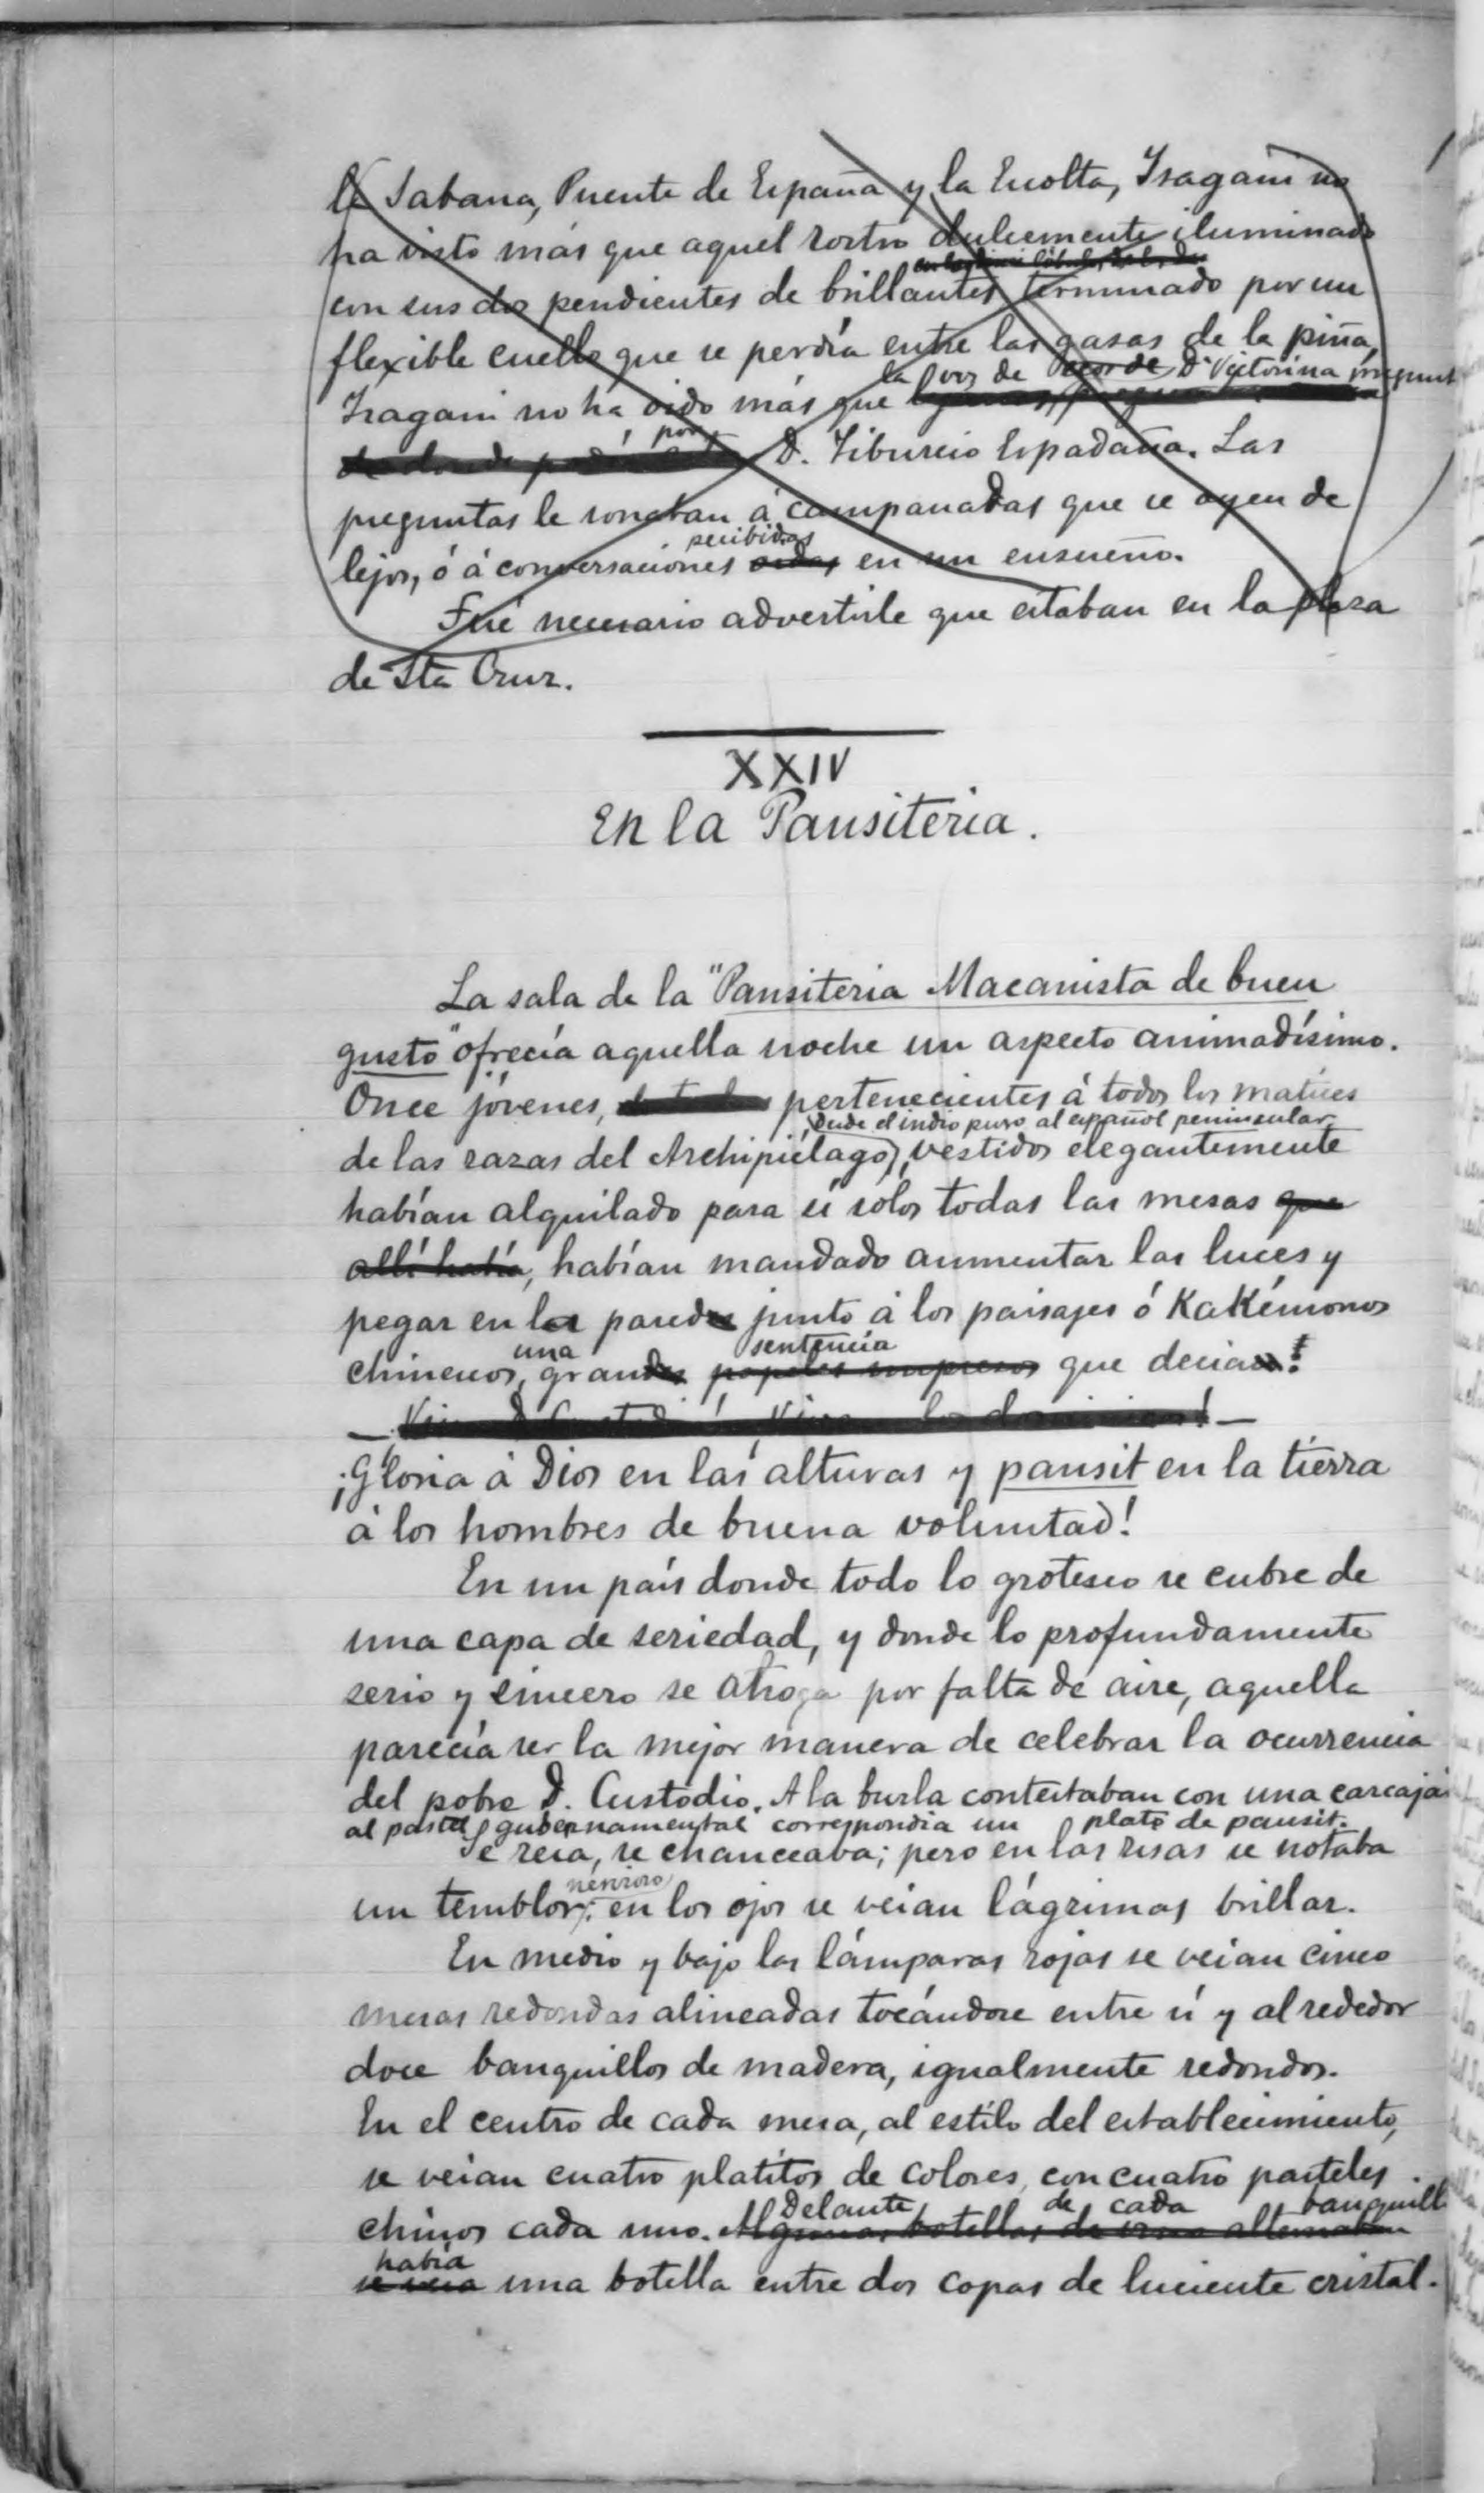 la Sabana, Puente de España y la Escolta, Isagani no
ha visto más que aquel rostro dulcemente iluminado
con sus dos pendientes de brillantes terminado por un
flexible cuello que se perdía entre las gasas de la piña,
la voz de D.ª Victorina pregunt
Isagani no ha oido más que
por
D. Tiburcio Espadaña. Las
preguntas le sonaban á campanadas que se oyen de
percibidas
lejos, ó á conversaciones oidas en un ensueño.
Fué necesario advertirle que estaban en la plaza
de Sta Cruz.
XXIV
En la Pansiteria.
La sala de la "Pansiteria Macanista de buen
gusto" ofrecía aquella noche un aspecto animadísimo.
Once jóvenes, pertenecientes á todos los matices
desde el indio puro al español peninsular
de las razas del Archipiélago, vestidos elegantemente
habían alquilado para sí solos todas las mesas que
allí había, habían mandado aumentar las luces y
pegar en las paredes junto á los paisajes ó Kakémonos
una sentencia
chinescos, grandes papeles impresos que decian:
¡Gloria á Dios en las alturas y pansit en la tierra
á los hombres de buena voluntad!
En un país donde todo lo grotesco se cubre de
una capa de seriedad, y donde lo profundamente
serio y sincero se ahoga por falta de aire, aquella
parecía ser la mejor manera de celebrar la ocurrencia
del pobre D. Custodio. A la burla contestaban con una carcaja
al pastel gubernamental correspondia un plato de pansit.
Se reia, se chanceaba; pero en las risas se notaba
nervioso
un temblor; en los ojos se veian lágrimas brillar.
En medio y bajo las lámparas rojas se veian cinco
mesas redondas alineadas tocándose entre sí y al rededor
doce banquillos de madera, igualmente redondos.
En el centro de cada mesa, al estilo del establecimiento,
se veian cuatro platitos de colores, con cuatro pasteles
Delante de cada banquill
chinos cada uno. Algunas botellas de vino alternaban
habia
se veia una botella entre dos copas de luciente cristal.